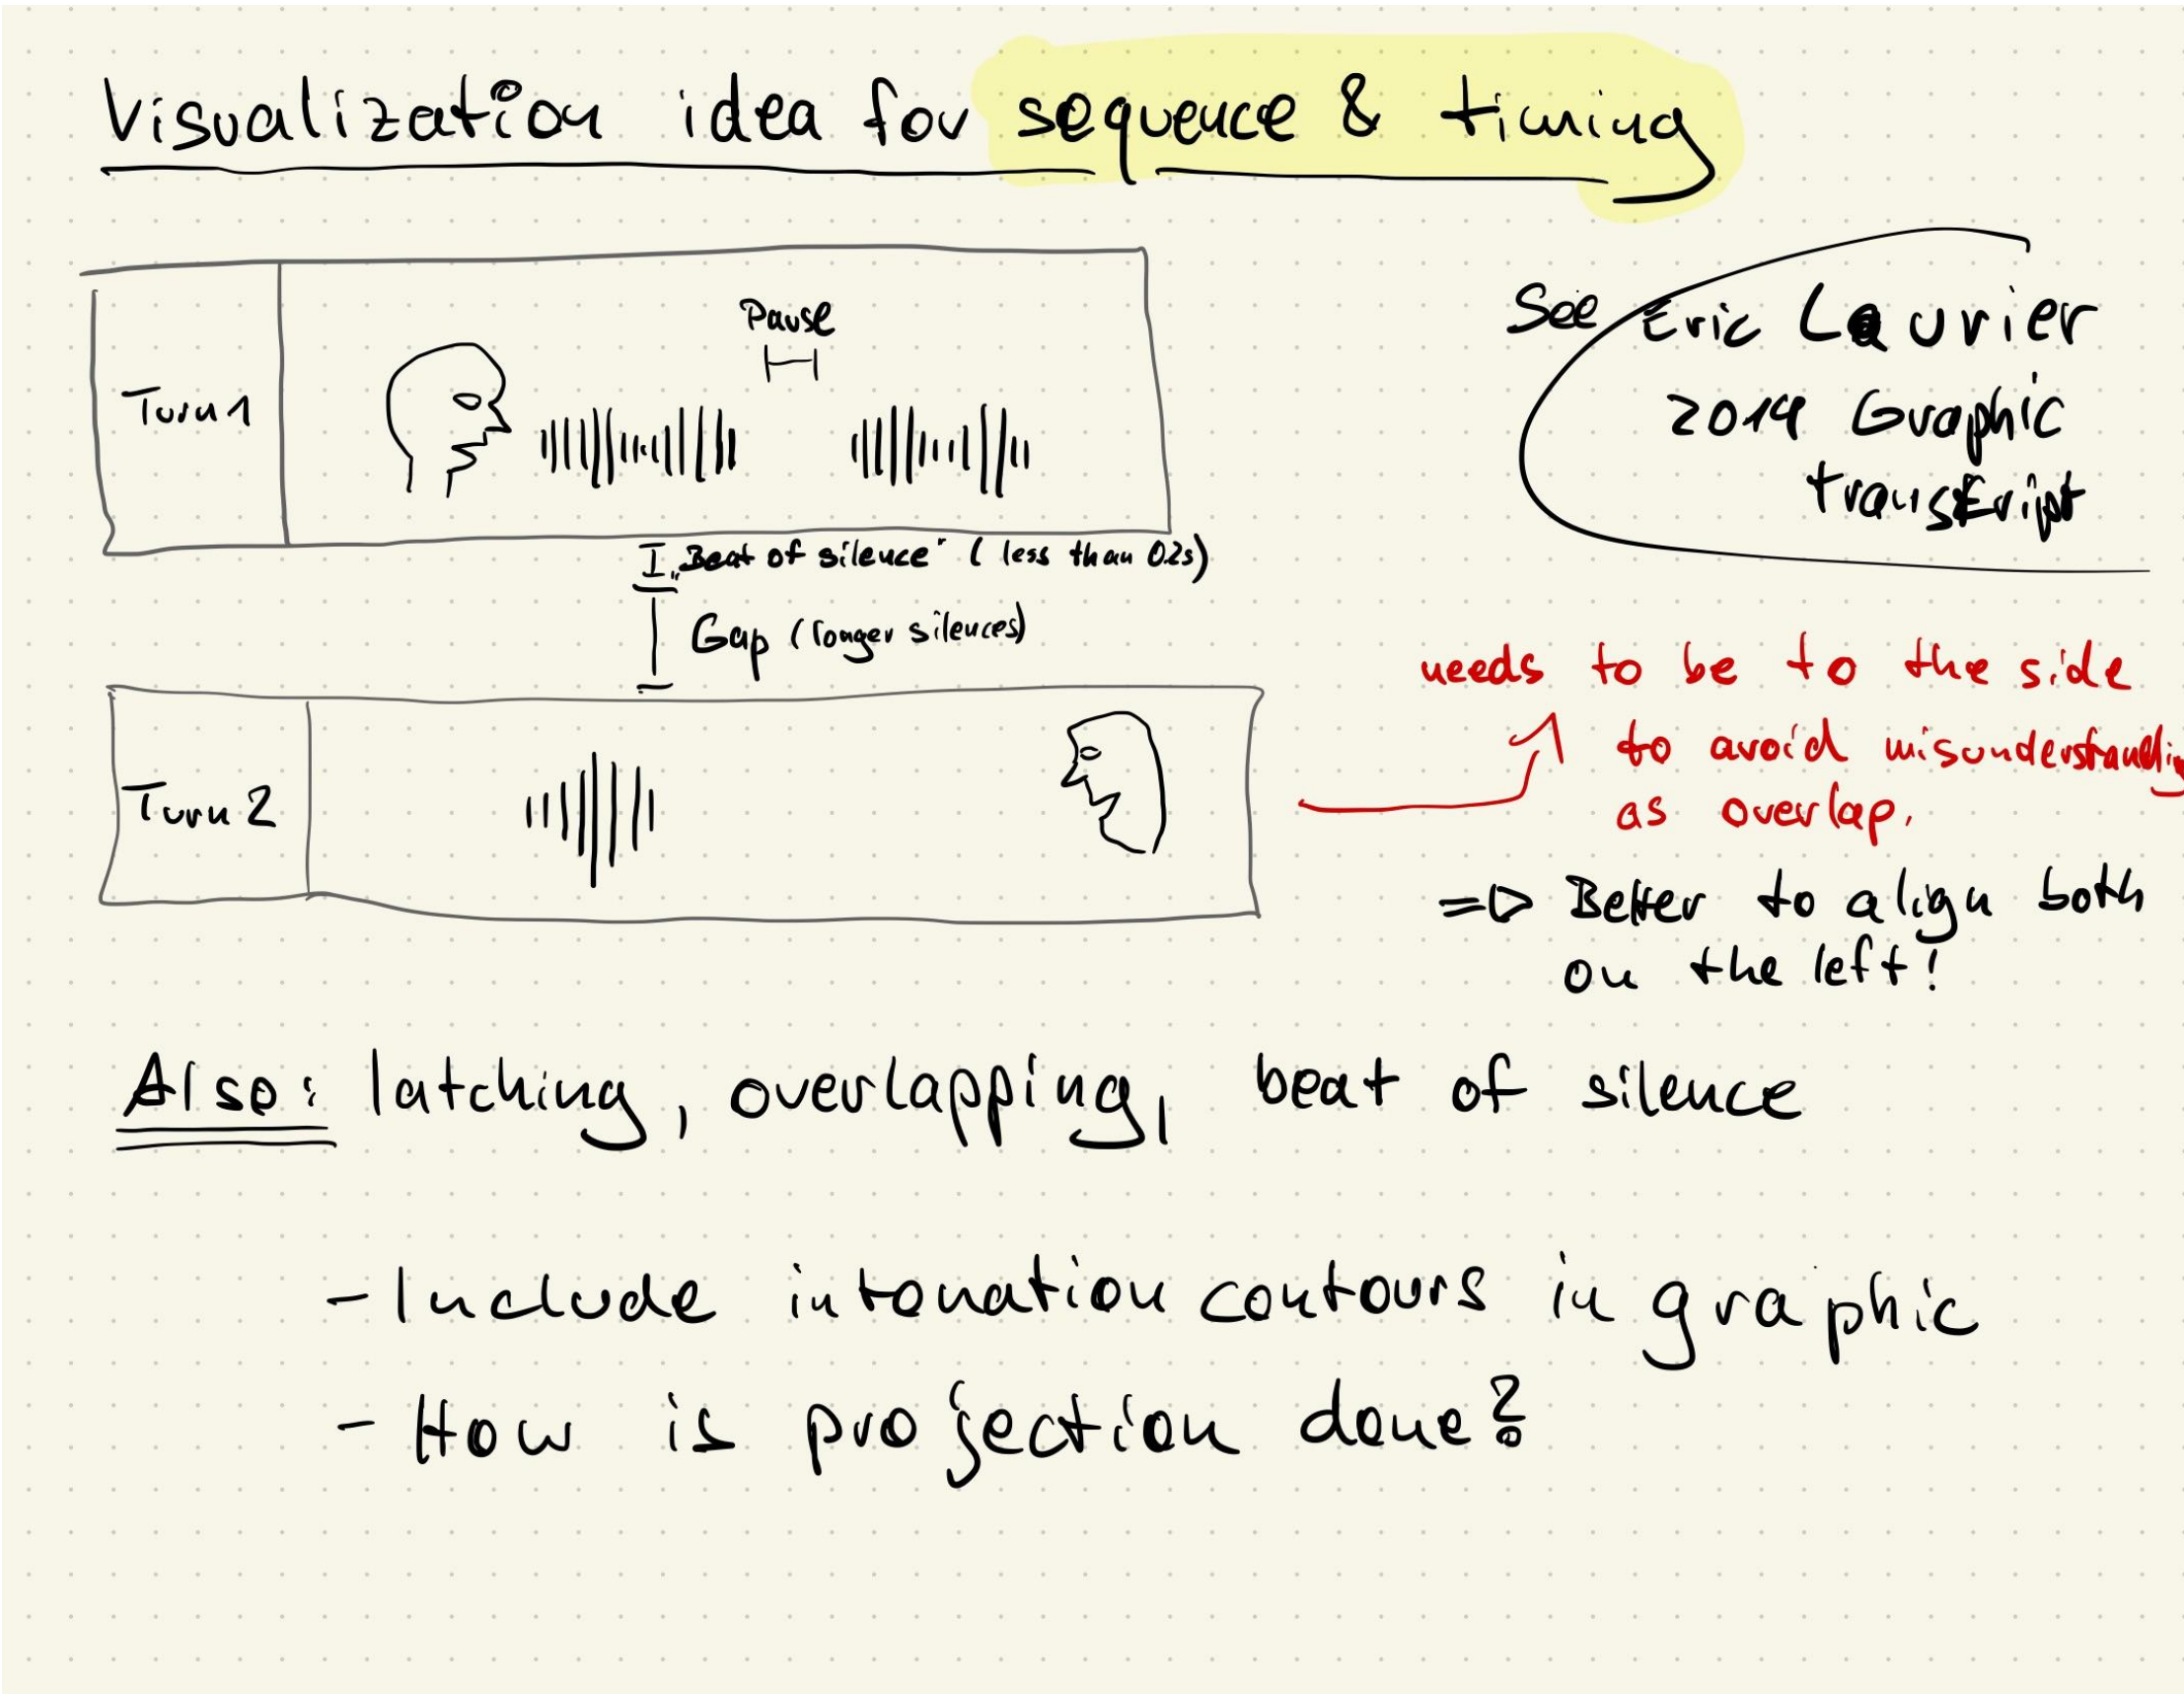 Visualization idea for sequence & timing
See Eric Laurier
2014 Graphic
transkript
Pause
Turn 1
"Beat of silence" (less than 0.2s)
Gap (longer silences)
Turn 2
needs to be to the side
to avoid misunderstanding
as overlap.
=> Better to align both
on the left!
Also: latching, overlapping, beat of silence
- Include intonation contours in graphic
- How is projection done?